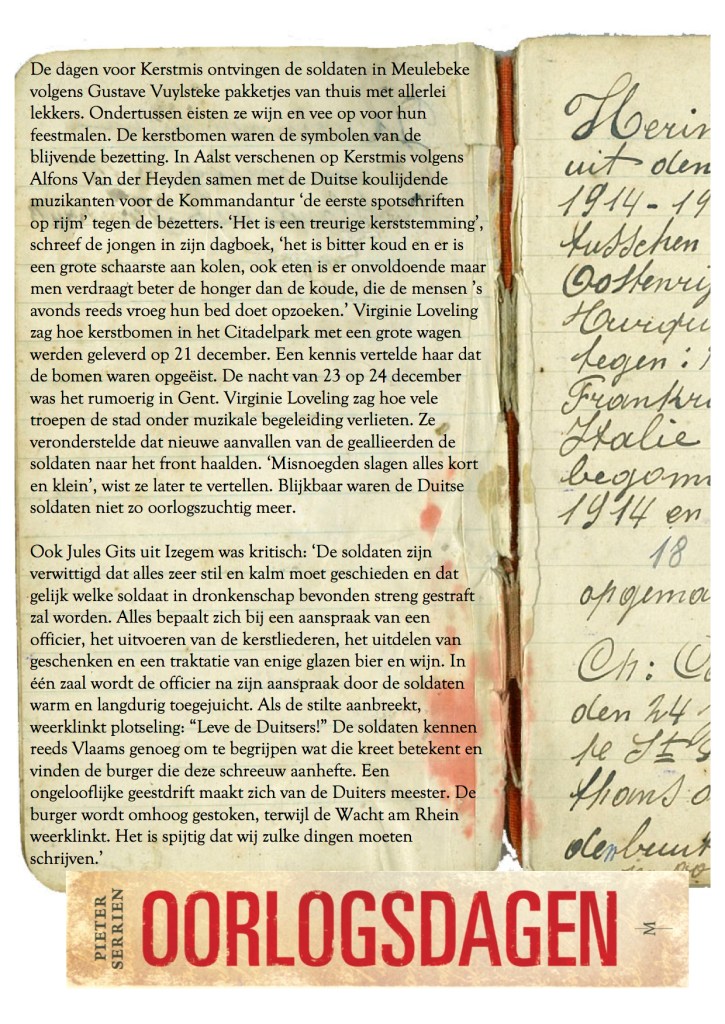 De dagen voor Kerstmis ontvingen de soldaten in Meulebeke
volgens Gustave Vuylsteke pakketjes van thuis met allerlei
lekkers. Ondertussen eisten ze wijn en vee op voor hun
feestmalen. De kerstbomen waren de symbolen van de
blijvende bezetting. In Aalst verschenen op Kerstmis volgens
Alfons Van der Heyden samen met de Duitse koulijdende
muzikanten voor de Kommandantur ‘de eerste spotschriften
op rijm’ tegen de bezetters. ‘Het is een treurige kerststemming’,
schreef de jongen in zijn dagboek, ‘het is bitter koud en er is
een grote schaarste aan kolen, ook eten is er onvoldoende maar
men verdraagt beter de honger dan de koude, die de mensen ’s
avonds reeds vroeg hun bed doet opzoeken.’ Virginie Loveling
zag hoe kerstbomen in het Citadelpark met een grote wagen
werden geleverd op 21 december. Een kennis vertelde haar dat
de bomen waren opgeëist. De nacht van 23 op 24 december
was het rumoerig in Gent. Virginie Loveling zag hoe vele
troepen de stad onder muzikale begeleiding verlieten. Ze
veronderstelde dat nieuwe aanvallen van de geallieerden de
soldaten naar het front haalden. ‘Misnoegden slagen alles kort
en klein’, wist ze later te vertellen. Blijkbaar waren de Duitse
soldaten niet zo oorlogszuchtig meer.
Ook Jules Gits uit Izegem was kritisch: ‘De soldaten zijn
verwittigd dat alles zeer stil en kalm moet geschieden en dat
gelijk welke soldaat in dronkenschap bevonden streng gestraft
zal worden. Alles bepaalt zich bij een aanspraak van een
officier, het uitvoeren van de kerstliederen, het uitdelen van
geschenken en een traktatie van enige glazen bier en wijn. In
één zaal wordt de officier na zijn aanspraak door de soldaten
warm en langdurig toegejuicht. Als de stilte aanbreekt,
weerklinkt plotseling: “Leve de Duitsers!” De soldaten kennen
reeds Vlaams genoeg om te begrijpen wat die kreet betekent en
vinden de burger die deze schreeuw aanhefte. Een
ongelooflijke geestdrift maakt zich van de Duiters meester. De
burger wordt omhoog gestoken, terwijl de Wacht am Rhein
weerklinkt. Het is spijtig dat wij zulke dingen moeten
schrijven.’
Herin
uit den
1914-19
tusschen
Oostenrij
Hurqu
tegen:
Frankr
Italie
begonn
1914 en
18
opgema
Ch:
den 24
te St
thans
PIETER
SERRIEN
OORLOGSDAGEN
M